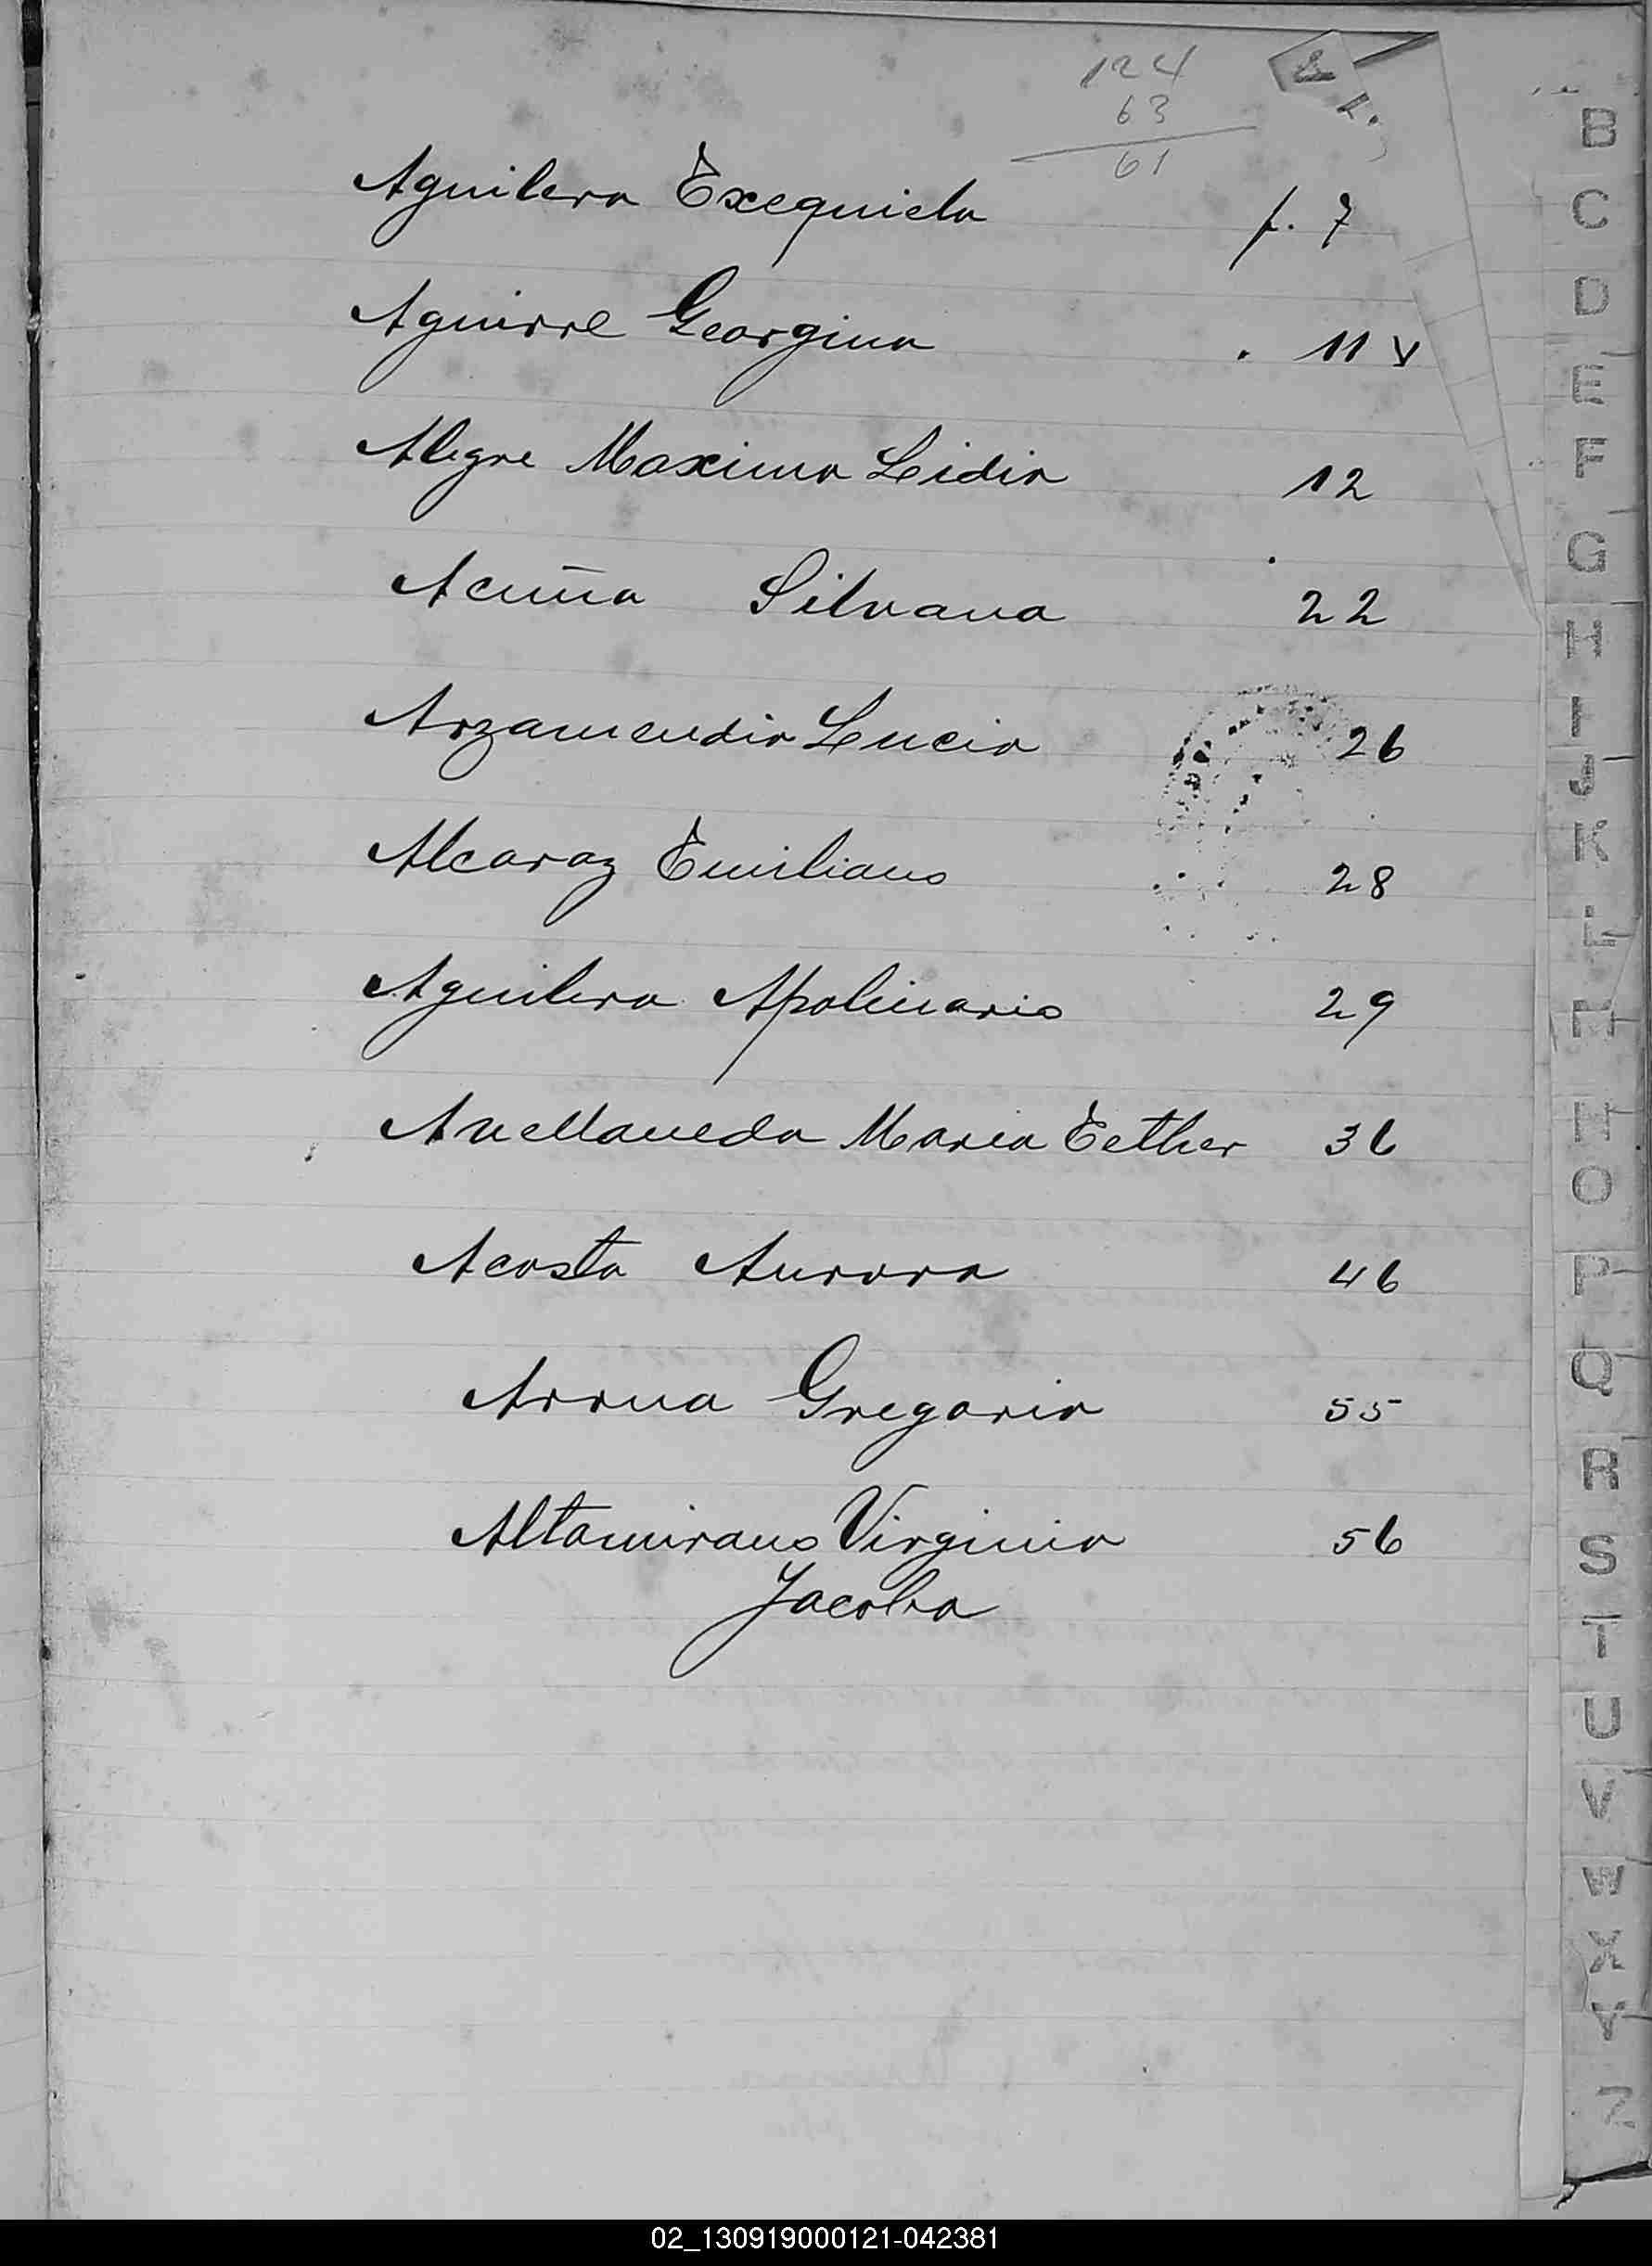 124
63
61
Aguilera Exequiela f. 7
Aguirre Georgina . 11 v
Alegre Maxima Lidia 12
Acuña Silvana 22
Arzamendia Lucia 26
Alcaraz Emiliano 28
Aguilera Apolinario 29
Avellaneda Maria Esther 36
Acosta Aurora 46
Arrua Gregoria 55
Altamirano Virginia 56
Jacoba
B
C
D
E
F
G
H
I
J
K
L
M
N
O
P
Q
R
S
T
U
V
W
X
Y
Z
02_130919000121-042381